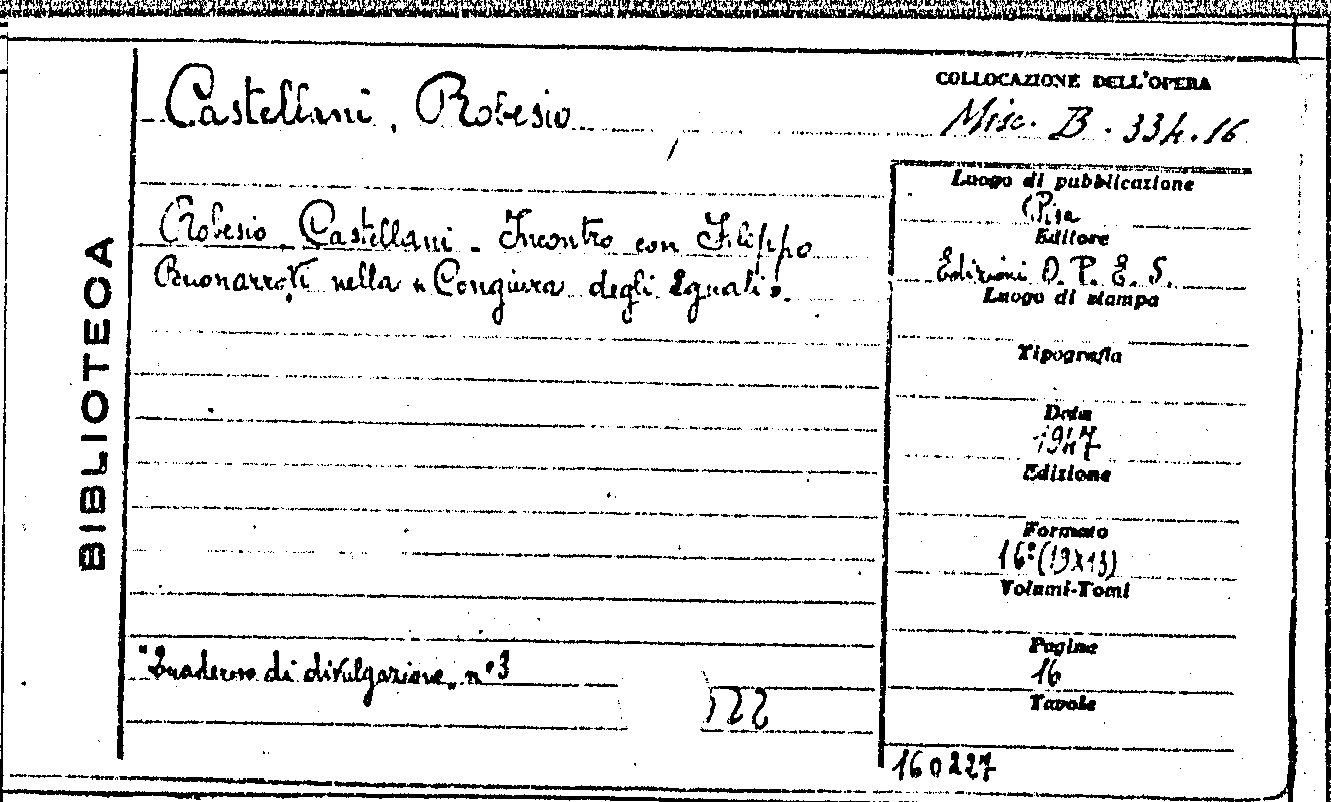 BIBLIOTECA
Castellani, Robesio
COLLOCAZIONE DELL'OPERA
Misc. B. 334.16
Robesio Castellani - Incontro con Filippo
Buonarroti nella "Congiura degli Eguali".
Luogo di pubblicazione
Pisa
Editore
Edizioni O. P. E. S.
Luogo di stampa
Tipografia
Data
1947
Edizione
Formato
16° (19x13)
Volumi-Tomi
Pagine
16
Tavole
"Quaderno di divulgazione" n° 3
122
160227